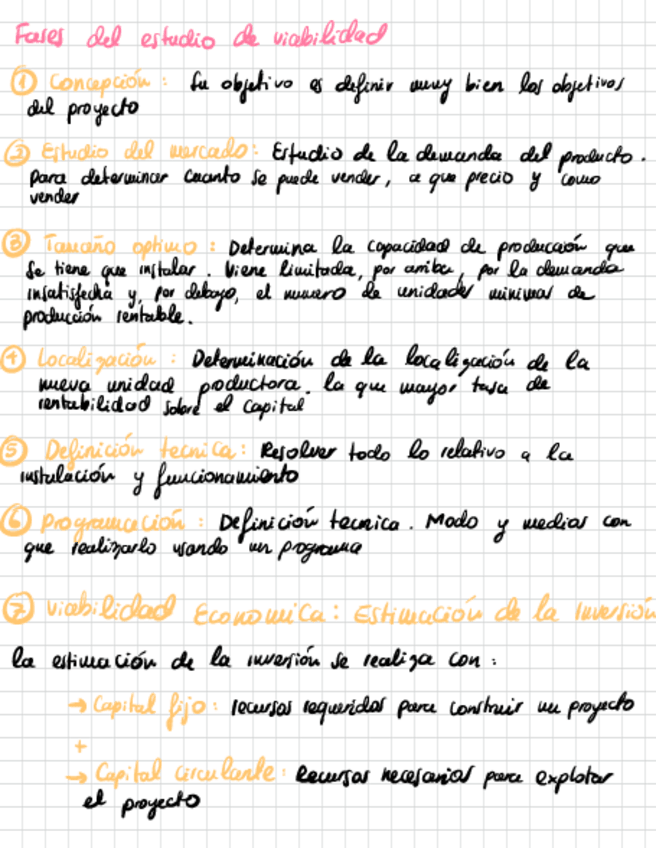 Fases del estudio de viabilidad
① Concepción : Su objetivo es definir muy bien los objetivos
del proyecto
② Estudio del mercado: Estudio de la demanda del producto.
para determinar cuanto se puede vender, a que precio y como
vender
③ Tamaño optimo : Determina la capacidad de producción que
se tiene que instalar. Viene limitada, por arriba, por la demanda
insatisfecha y, por debajo, el numero de unidades minimas de
producción rentable.
④ Localización : Determinación de la localización de la
nueva unidad productora. la que mayor tasa de
rentabilidad sobre el capital
⑤ Definición tecnica: Resolver todo lo relativo a la
instalación y funcionamiento
⑥ programación : Definición tecnica. Modo y medios con
que realizarlo usando un programa
⑦ Viabilidad Economica: Estimación de la Inversión
la estimación de la inversión se realiza con :
→ Capital fijo: recursos requeridos para construir un proyecto
+
→ Capital circulante: Recursos necesarios para explotar
el proyecto